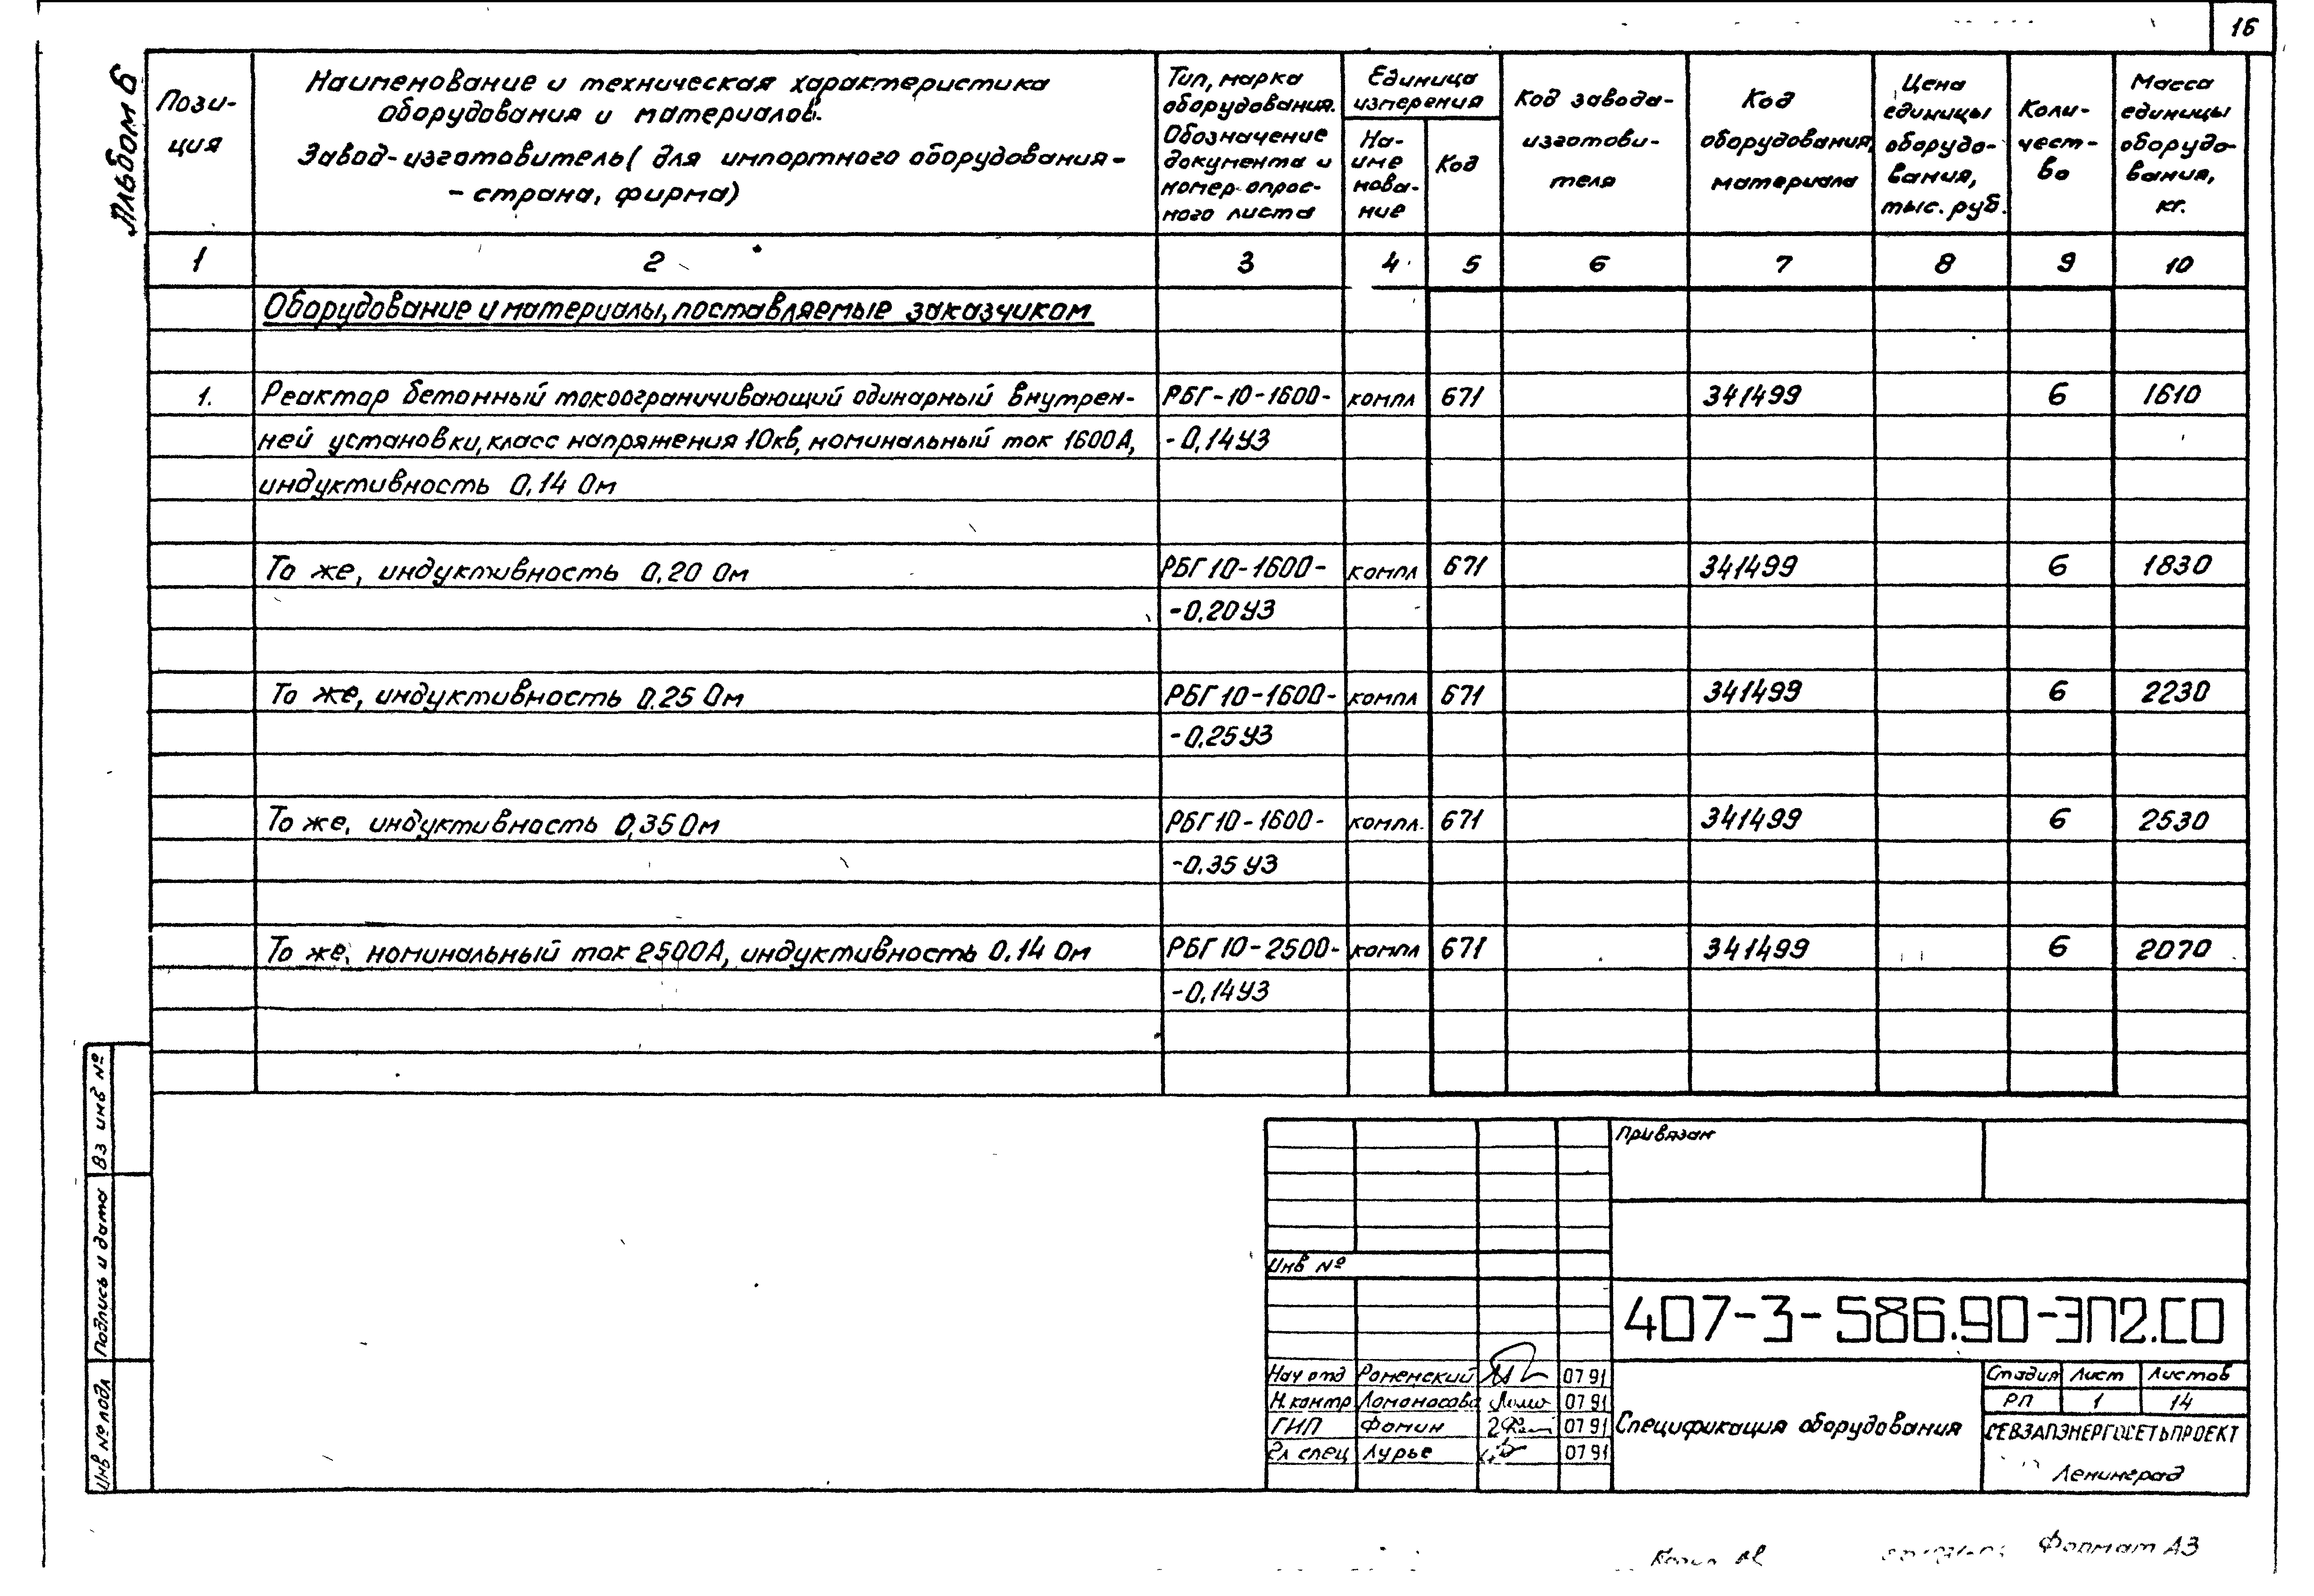 16
Альбом 6
Пози-
ция
Наименование и техническая характеристика
оборудования и материалов.
Завод-изготовитель( для импортного оборудования-
- страна, фирма)
Тип, марка
оборудования.
Обозначение
документа и
номер опрос-
ного листа
Единица
измерения
На-
име
нова-
ние
Код
Код завода-
изготови-
теля
Код
оборудования,
материала
Цена
единицы
оборудо-
вания,
тыс. руб.
Коли-
чест-
во
Масса
единицы
оборудо-
вания,
кг.
1 2 3 4 5 6 7 8 9 10
Оборудование и материалы, поставляемые заказчиком
1. Реактор бетонный токоограничивающий одинарный внутрен- РБГ-10-1600- компл 671 341499 6 1610
ней установки, класс напряжения 10кв, номинальный ток 1600А, -0,14У3
индуктивность 0,14 Ом
То же, индуктивность 0,20 Ом РБГ10-1600- компл 671 341499 6 1830
-0,20У3
То же, индуктивность 0.25 Ом РБГ 10-1600- компл 671 341499 6 2230
-0,25У3
То же, индуктивность 0,35 Ом РБГ10-1600- компл. 671 341499 6 2530
-0,35 У3
То же, номинальный ток 2500А, индуктивность 0.14 Ом РБГ 10-2500- компл 671 341499 6 2070
-0,14У3
Вз инв №
Подпись и дата
Инв № подл
Привязан
Инв №
407-3-586.90-ЭП2.СО
Нач отд Роменский 07 91
Н.контр Ломоносова 07 91
ГИП Фомин 07 91
Гл спец Лурье 07 91
Спецификация оборудования
Стадия Лист Листов
РП 1 14
СЕВЗАПЭНЕРГОСЕТЬПРОЕКТ
Ленинград
Формат А3